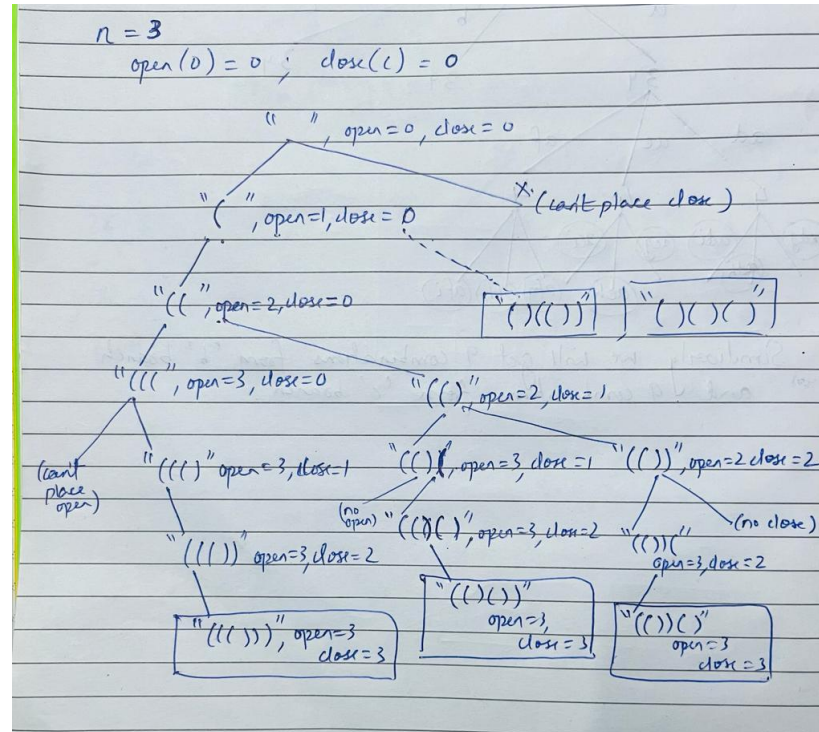 n = 3
open(0) = 0 ; close(c) = 0
" ", open=0, close=0
"(", open=1, close=0
X (can't place close)
"((", open=2, close=0
"()(())" "()()()"
"(((", open=3, close=0
"(()", open=2, close=1
(can't place open)
"((()" open=3, close=1
"(()(", open=3, close=1
"(())", open=2 close=2
(no open)
"((())" open=3, close=2
"(()()", open=3, close=2
"(())("
open=3, close=2
(no close)
"((()))", open=3
close=3
"(()())"
open=3,
close=3
"(())()"
open=3
close=3